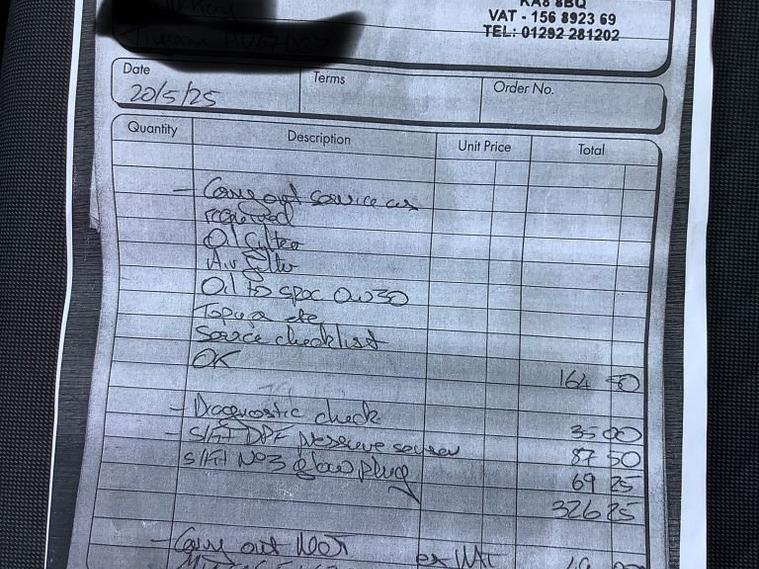 KA8 8BQ
VAT - 156 8923 69
TEL: 01292 281202
Date
Terms
Order No.
20/5/25
Quantity Description Unit Price Total
- Carry out service as
required
Oil filter
Air filter
Oil to spec 0w30
Top up etc
Service checklist
OK
164 50
- Diagnostic check 35 00
- S/Fit DPF pressure sensor 87 50
S/Fit No3 glow plug 69 25
326 25
- Carry out MOT ex VAT